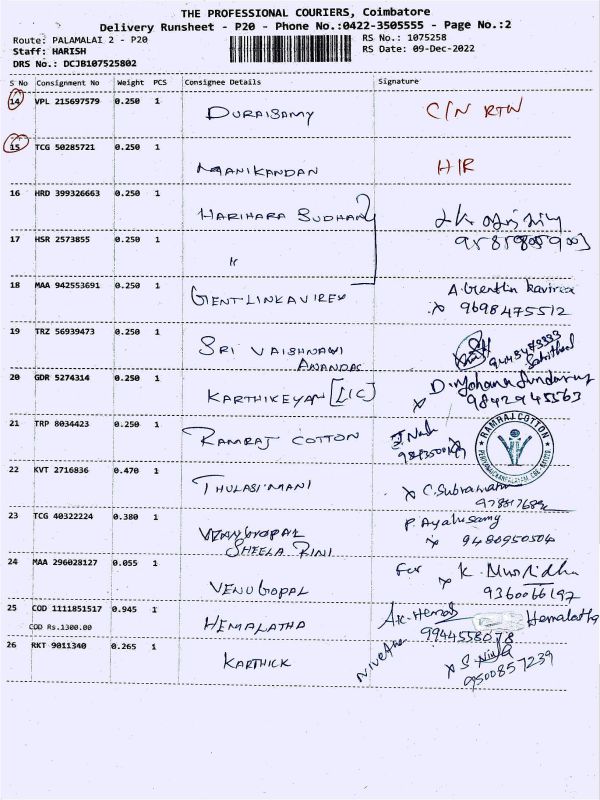 THE PROFESSIONAL COURIERS, Coimbatore
Delivery Runsheet - P20 - Phone No.:0422-3505555 - Page No.:2
Route: PALAMALAI 2 - P20
RS No.: 1075258
Staff: HARISH
RS Date: 09-Dec-2022
DRS No.: DCJB107525802
S No Consignment No Weight PCS Consignee Details Signature
14 VPL 215697579 0.250 1 DURAISAMY C/N RTN
15 TCG 50285721 0.250 1 MANIKANDAN H/R
16 HRD 399326663 0.250 1 HARIHARA SUDHAN
17 HSR 2573855 0.250 1 "
18 MAA 942553691 0.250 1 GENTLINKAVIREX A. Gentlin kavirex
x 9698475512
19 TRZ 56939473 0.250 1 SRI VAISHNAVI
ANANDAS
20 GDR 5274314 0.250 1 KARTHIKEYAN [LIC]
x 9842945563
21 TRP 8034423 0.250 1 RAMRAJ COTTON
RAMRAJ COTTON
22 KVT 2716836 0.470 1 THULASIMANI x C. Subramani
23 TCG 40322224 0.380 1 VENUGOPAL P. Ayalusamy
SHEELA RINI x 9480950504
24 MAA 296028127 0.055 1 VENUGOPAL For x K. Muralidha
9360066192
25 COD 1111851517 0.945 1 HEMALATHA A.K. Hema Hemalatha
COD Rs.1300.00 9944558078
26 RKT 9011340 0.265 1 KARTHICK x S.
9500857239